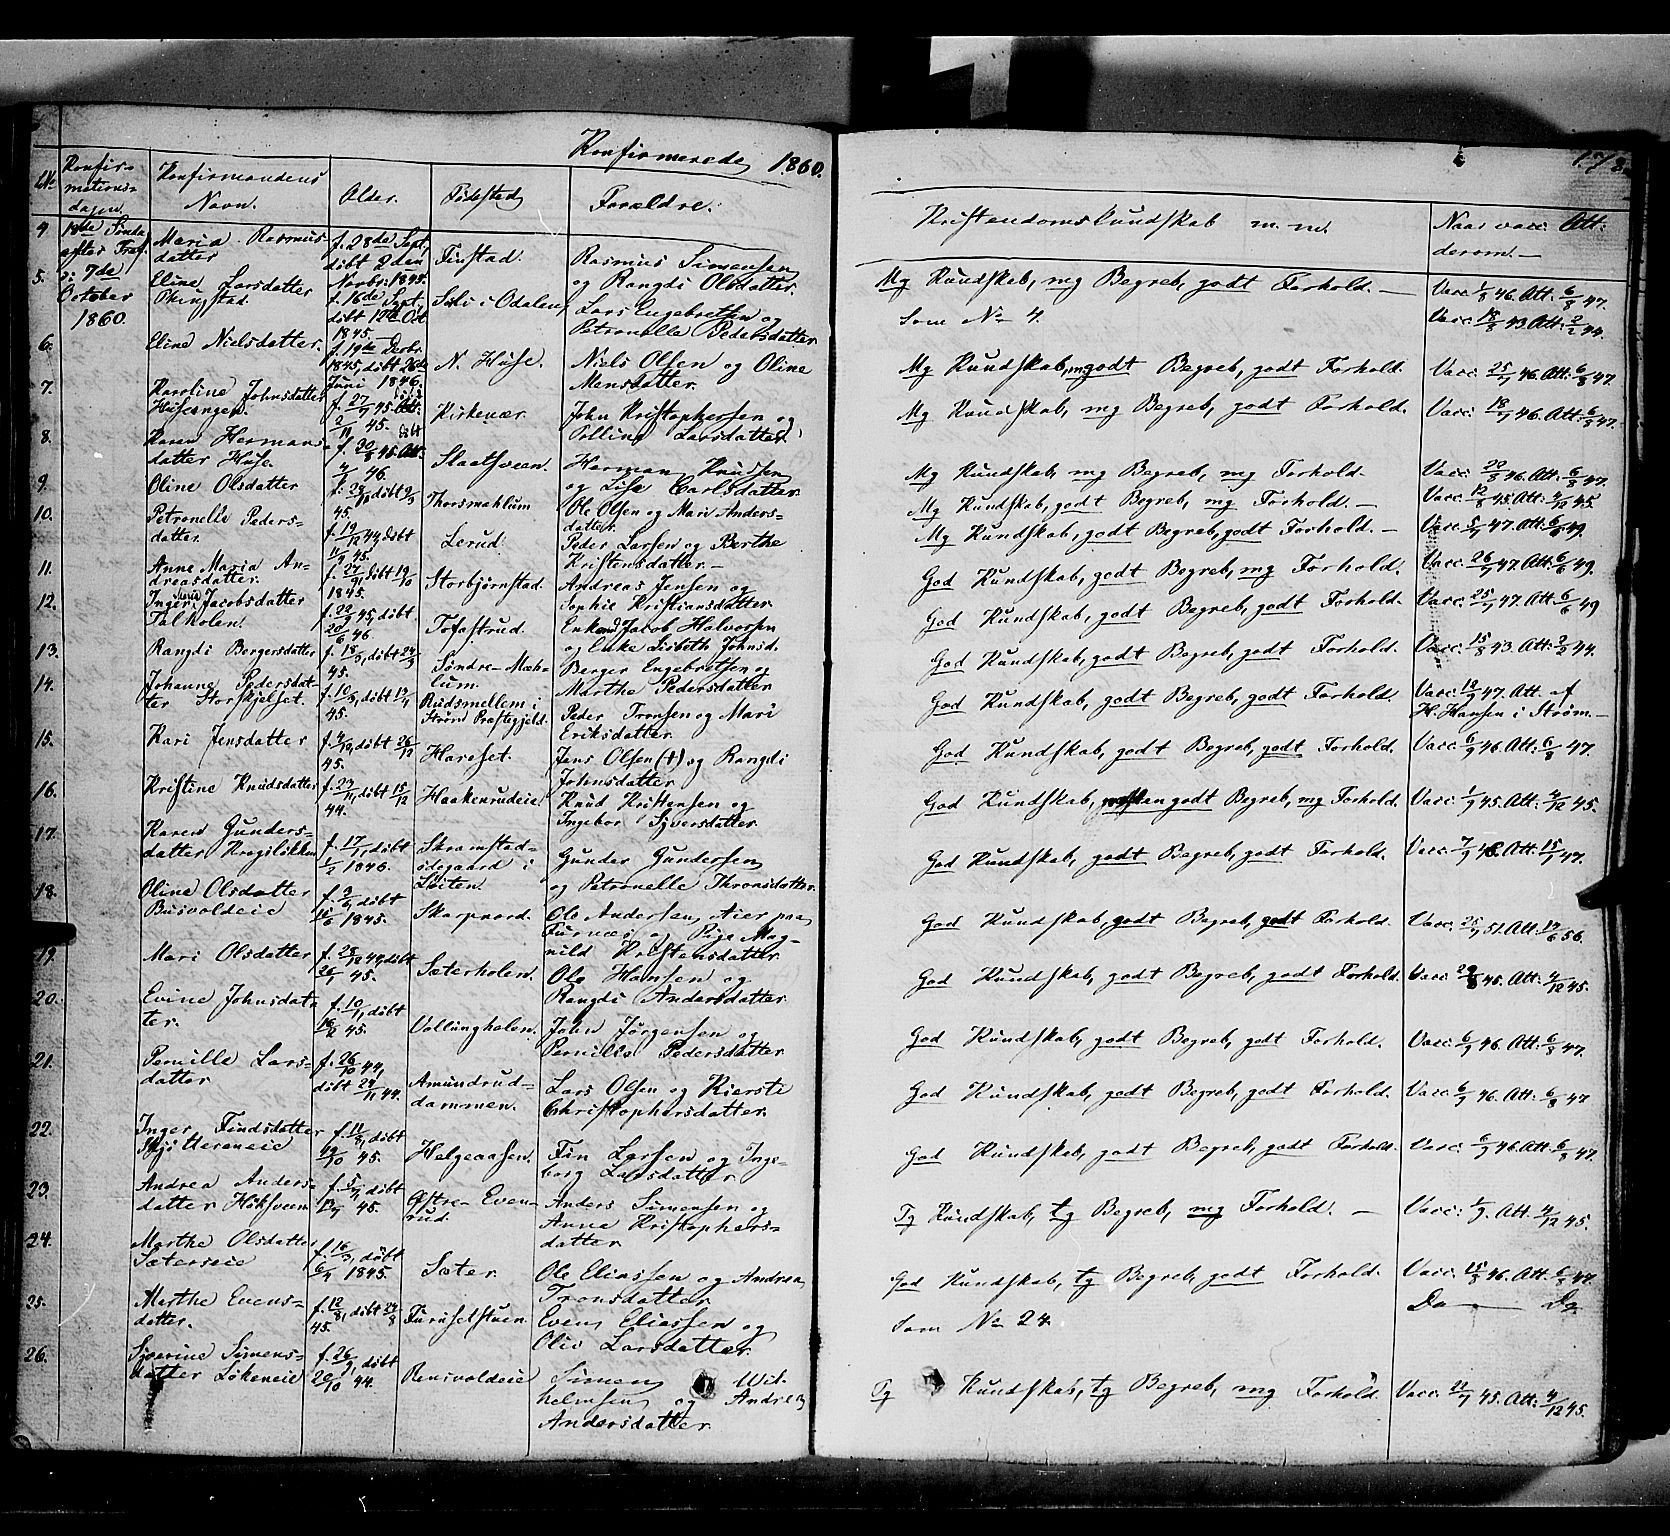 Konfirmerede 1860.
No Konfirmationsdagen. Konfirmandens Navn. Alder. Fødested Forældre. Kristendomskundskab m. m. Naar vacc: Att: derom.
4. 18de Sønda efter Tref. Maria Rasmusdatter f. 28de Sept. døbt 2den Novbr: 1845. Finstad. Rasmus Simensen og Rangdi Olsdatter. Mg Kundskab, mg Begreb, godt Forhold. — Vacc: 1/8 46. Att: 6/8 47.
5. 7de October 1860. Eline Larsdatter f. 16de Sept. døbt 12te Oct 1845. i Odalen Lars Engebretsen og Petronelle Pedersdatter. Som No 4. Vacc: 18/8 43. Att: 2/2 44.
6. Eline Nielsdatter. f. 19de Decbr. 1845, døbt 26de Juni 1846. N. Huse. Niels Olsen og Oline Mensdatter. Mg Kundskab, mg Begreb, godt Forhold. Vacc: 25/7 46. Att: 6/8 47.
7. Karoline Johnsdatter Huseengen. f. 27/7 45. døbt 2/11 45. Kirkenær. John Kristophersen og Larsdatter. Mg Kundskab, mg Begreb, godt Forhold. Vacc: 18/7 46. Att: 6/8 47.
8. Karen Hermansdatter Huse. f. 30/8 45. døbt 4/ 46. Slaatsveen. Herman Knudsen og Lise Carlsdatter. Mg Kundskab, mg Begreb, mg Forhold. Vacc: 22/8 46. Att: 6/8 47.
9. Oline Olsdatter f. 28/ døbt 2/3 45. Thorsmahlum Ole Olsen og Mari Andersdatter. Mg Kundskab, godt Begreb, mg Forhold. — Vacc: 12/8 45. Att: 4/12 45.
10. Petronelle Pedersdatter. f. 19/12 44, døbt 11/ 45. Lerud. Peder Larsen og Berthe Kristensdatter. — Mg Kundskab, godt Begreb, godt Forhold. — Vacc: 5/7 47. Att: 6/6 49.
11. Anne Maria Andreasdatter. f. 27/9, døbt 19/10 1845. Storbjørnstad. Andreas Jensen og Sophie Kristiansdatter. God Kundskab, godt Begreb, mg Forhold. Vacc: 26/7 47. Att: 6/6 49.
12. Inger Jacobsdatter Talkolen. f. 22/9 45, døbt 20/6 46. Tofastrud. Enkemd Jacob Halvorsen og Enke Lisbeth Johnsd. God Kundskab, godt Begreb, godt Forhold. Vacc: 25/7 47. Att: 6/6 49
13. Rangdi Bergersdatter f. 18/3, døbt 24/3 45. Søndre-Mæhlum. Berger Engebretsen og Marthe Pedersdatter. God Kundskab, godt Begreb, godt Forhold. Vacc: 15/8 43. Att: 2/2 44.
14. Johanne Pedersdatter Storskjelset. f. 10/3, døbt 13/4 45. Rudsmellem i Strøm Præstegjeld. Peder Tronsen og Mari Eriksdatter. God Kundskab, godt Begreb, godt Forhold. Vacc: 12/9 47. Att. af H. Hansen i Strøm. —
15. Kari Jensdatter f. 4/12, døbt 26/12 45. Hareset. Jens Olsen (†) og Rangdi Johnsdatter. God Kundskab, godt Begreb, godt Forhold. Vacc: 6/9 46. Att: 6/8 47.
16. Kristine Knudsdatter f. 23/11, døbt 15/12 44. Haakenrudeie. Knud Kristensen og Ingebor Syversdatter. God Kundskab, godt Begreb, mg Forhold. Vacc: 1/9 45. Att: 4/12 45.
17. Karen Gundersdatter Krogsløkken f. 17/1, døbt 1/2 1846. Skramstadødegaard i Løiten. Gunder Gundersen og Petronelle Thronsdatter. God Kundskab, godt Begreb, godt Forhold. Vacc: 7/9 46. Att: 15/1 47.
18. Oline Olsdatter Busvoldeie f. 3/6, døbt 15/6 1845. Skarpnord. Ole Andersen Aier paa Furnæs og Pige Magnild Kristensdatter. God Kundskab, godt Begreb, godt Forhold. Vacc: 25/7 51. Att: 14/6 56.
19. Mari Olsdatter f. 28/12 44, døbt 26/1 45. Sæterholen. Ole Hansen og Rangdi Andersdatter. God Kundskab, godt Begreb, godt Forhold. Vacc: 29/8 45. Att: 4/12 45.
20. Evine Johnsdatter. f. 10/1, døbt 16/2 45. Vollungholen. John Jørgensen og Pernille Pedersdatter God Kundskab, godt Begreb, godt Forhold. Vacc: 6/9 46. Att: 6/8 47.
21. Pernille Larsdatter f. 26/10 44, døbt 24/11 44. Amundruddammen. Lars Olsen og Kierste Christophersdatter. God Kundskab, godt Begreb, godt Forhold. Vacc: 6/9 46. Att: 6/8 47
22. Inger Findsdatter Skjøttereneie f. 11/8, døbt 19/10 45. Helgeaasen. Fin Larsen og Ingeborg Larsdatter. God Kundskab, godt Begreb, godt Forhold. Vacc: 6/9 46. Att: 6/8 47.
23. Andrea Andersdatter Høksveen f. 5/4, døbt 13/4 45. Østre-Evenrud. Anders Simensen og Anne Kristophersdatter. Tg Kundskab, tg Begreb, mg Forhold. — Vacc: 1/9. Att. 4/12 45.
24. Marthe Olsdatter Sæterseie f. 16/3, døbt 6/4 1845. Sæter. Ole Eliassen og Andrea Tronsdatter. God Kundskab, tg Begreb, godt Forhold. Vacc: 15/8 46. Att. 6/8 47.
25. Marthe Evensdatter. f. 12/8, døbt 24/8 45. Furusetstuen Even Eliassen og Olie Larsdatter. Som No 24. Do — Do
26. Syverine Simensdatter Løkeneie f. 26/9, døbt 20/10 44. Rensvoldeie Simen Wilhelmsen og Andrea Andersdatter. Tg Kundskab, tg Begreb, mg Forhold. Vacc: 22/7 45. Att: 4/12 45.